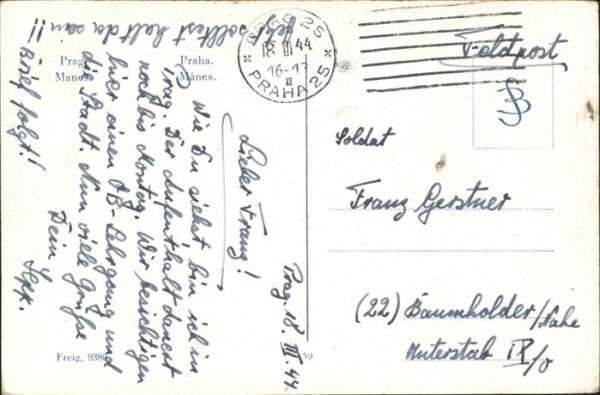 Prag.
Manes.
Praha.
Mánes.
PRAG 25
18. III. 44
16-17
II
PRAHA 25
Feldpost
Prag 18. III. 44.
Lieber Franz!
Wie Du siehst bin ich in
Prag. Der Aufenthalt dauert
noch bis Montag. Wir besichtigen
hier einen Lehrgang und
die Stadt. Nun viele Grüße
Dein Sepp.
Brief folgt!
solltest halt da sein!!
Soldat
Franz Gerstner
(22) Baumholder/Nahe
Unterstab
Freig.
59